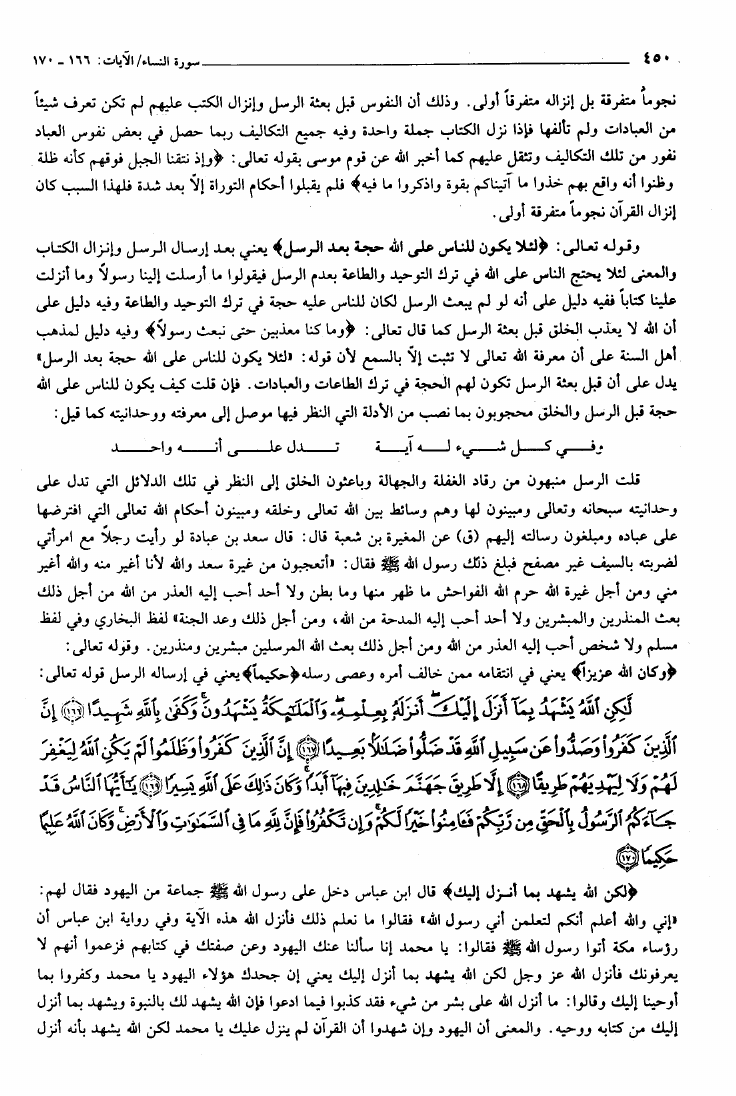 ٤٥٠ سورة النساء/ الآيات: ١٦٦ ـ ١٧٠
نجوماً متفرقة بل إنزاله متفرقاً أولى. وذلك أن النفوس قبل بعثة الرسل وإنزال الكتب عليهم لم تكن تعرف شيئاً
من العبادات ولم تألفها فإذا نزل الكتاب جملة واحدة وفيه جميع التكاليف ربما حصل في بعض نفوس العباد
نفور من تلك التكاليف وتثقل عليهم كما أخبر الله عن قوم موسى بقوله تعالى: ﴿وإذ نتقنا الجبل فوقهم كأنه ظلة
وظنوا أنه واقع بهم خذوا ما آتيناكم بقوة واذكروا ما فيه﴾ فلم يقبلوا أحكام التوراة إلّا بعد شدة فلهذا السبب كان
إنزال القرآن نجوماً متفرقة أولى.
وقوله تعالى: ﴿لئلا يكون للناس على الله حجة بعد الرسل﴾ يعني بعد إرسال الرسل وإنزال الكتاب
والمعنى لئلا يحتج الناس على الله في ترك التوحيد والطاعة بعدم الرسل فيقولوا ما أرسلت إلينا رسولاً وما أنزلت
علينا كتاباً ففيه دليل على أنه لو لم يبعث الرسل لكان للناس عليه حجة في ترك التوحيد والطاعة وفيه دليل على
أن الله لا يعذب الخلق قبل بعثة الرسل كما قال تعالى: ﴿وما كنا معذبين حتى نبعث رسولاً﴾ وفيه دليل لمذهب
أهل السنة على أن معرفة الله تعالى لا تثبت إلّا بالسمع لأن قوله: «لئلا يكون للناس على الله حجة بعد الرسل»
يدل على أن قبل بعثة الرسل تكون لهم الحجة في ترك الطاعات والعبادات. فإن قلت كيف يكون للناس على الله
حجة قبل الرسل والخلق محجوبون بما نصب من الأدلة التي النظر فيها موصل إلى معرفته ووحدانيته كما قيل:
وفي كل شيء له آية تدل على أنه واحد
قلت الرسل منبهون من رقاد الغفلة والجهالة وباعثون الخلق إلى النظر في تلك الدلائل التي تدل على
وحدانيته سبحانه وتعالى ومبينون لها وهم وسائط بين الله تعالى وخلقه ومبينون أحكام الله تعالى التي افترضها
على عباده ومبلغون رسالته إليهم (ق) عن المغيرة بن شعبة قال: قال سعد بن عبادة لو رأيت رجلاً مع امرأتي
لضربته بالسيف غير مصفح فبلغ ذلك رسول الله ﷺ فقال: «أتعجبون من غيرة سعد والله لأنا أغير منه والله أغير
مني ومن أجل غيرة الله حرم الله الفواحش ما ظهر منها وما بطن ولا أحد أحب إليه العذر من الله من أجل ذلك
بعث المنذرين والمبشرين ولا أحد أحب إليه المدحة من الله، ومن أجل ذلك وعد الجنة» لفظ البخاري وفي لفظ
مسلم ولا شخص أحب إليه العذر من الله ومن أجل ذلك بعث الله المرسلين مبشرين ومنذرين. وقوله تعالى:
﴿وكان الله عزيزاً﴾ يعني في انتقامه ممن خالف أمره وعصى رسله ﴿حكيماً﴾ يعني في إرساله الرسل قوله تعالى:
لَّكِنِ ٱللَّهُ يَشْهَدُ بِمَآ أَنزَلَ إِلَيْكَ أَنزَلَهُۥ بِعِلْمِهِۦ وَٱلْمَلَٰٓئِكَةُ يَشْهَدُونَ وَكَفَىٰ بِٱللَّهِ شَهِيدًا ﴿١٦٦﴾ إِنَّ
ٱلَّذِينَ كَفَرُوا۟ وَصَدُّوا۟ عَن سَبِيلِ ٱللَّهِ قَدْ ضَلُّوا۟ ضَلَٰلًۢا بَعِيدًا ﴿١٦٧﴾ إِنَّ ٱلَّذِينَ كَفَرُوا۟ وَظَلَمُوا۟ لَمْ يَكُنِ ٱللَّهُ لِيَغْفِرَ
لَهُمْ وَلَا لِيَهْدِيَهُمْ طَرِيقًا ﴿١٦٨﴾ إِلَّا طَرِيقَ جَهَنَّمَ خَٰلِدِينَ فِيهَآ أَبَدًا وَكَانَ ذَٰلِكَ عَلَى ٱللَّهِ يَسِيرًا ﴿١٦٩﴾ يَٰٓأَيُّهَا ٱلنَّاسُ قَدْ
جَآءَكُمُ ٱلرَّسُولُ بِٱلْحَقِّ مِن رَّبِّكُمْ فَـَٔامِنُوا۟ خَيْرًا لَّكُمْ وَإِن تَكْفُرُوا۟ فَإِنَّ لِلَّهِ مَا فِى ٱلسَّمَٰوَٰتِ وَٱلْأَرْضِ وَكَانَ ٱللَّهُ عَلِيمًا
حَكِيمًا ﴿١٧٠﴾
﴿لكن الله يشهد بما أنزل إليك﴾ قال ابن عباس دخل على رسول الله ﷺ جماعة من اليهود فقال لهم:
«إني والله أعلم أنكم لتعلمن أني رسول الله» فقالوا ما نعلم ذلك فأنزل الله هذه الآية وفي رواية ابن عباس أن
رؤساء مكة أتوا رسول الله ﷺ فقالوا: يا محمد إنا سألنا عنك اليهود وعن صفتك في كتابهم فزعموا أنهم لا
يعرفونك فأنزل الله عز وجل لكن الله يشهد بما أنزل إليك يعني إن جحدك هؤلاء اليهود يا محمد وكفروا بما
أوحينا إليك وقالوا: ما أنزل الله على بشر من شيء فقد كذبوا فيما ادعوا فإن الله يشهد لك بالنبوة ويشهد بما أنزل
إليك من كتابه ووحيه. والمعنى أن اليهود وإن شهدوا أن القرآن لم ينزل عليك يا محمد لكن الله يشهد بأنه أنزل